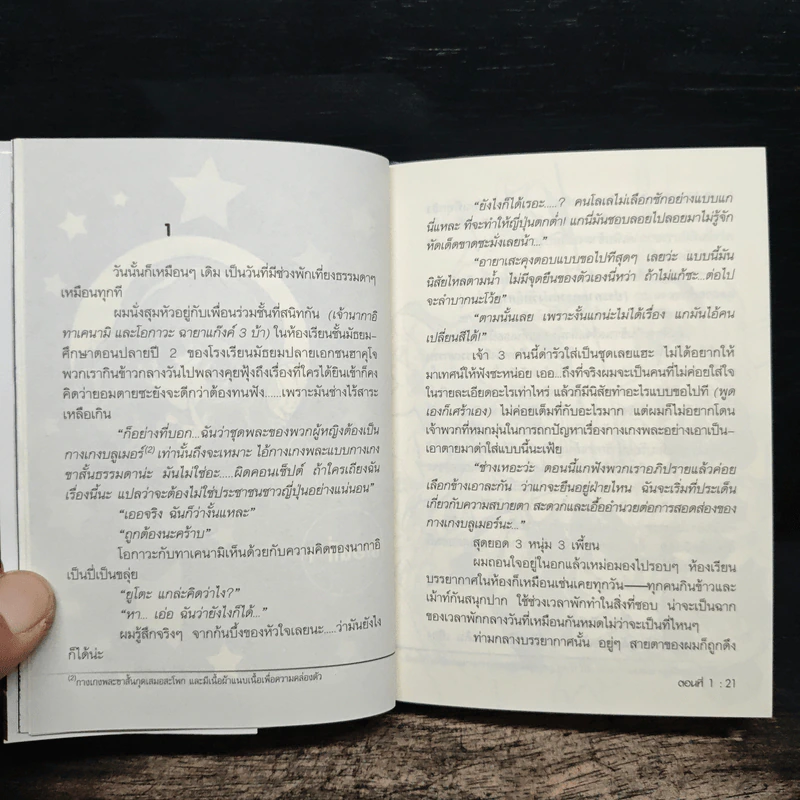 1
วันนั้นก็เหมือนๆ เดิม เป็นวันที่มีช่วงพักเที่ยงธรรมดาๆ
เหมือนทุกที
ผมนั่งสุมหัวอยู่กับเพื่อนร่วมชั้นที่สนิทกัน (เจ้านากาอิ
ทาเคนามิ และโอกาวะ ฉายาแก๊งค์ 3 บ้า) ในห้องเรียนชั้นมัธยม-
ศึกษาตอนปลายปี 2 ของโรงเรียนมัธยมปลายเอกชนฮาคุโจ
พวกเรากินข้าวกลางวันไปพลางคุยฟุ้งถึงเรื่องที่ใครได้ยินเข้าก็คง
คิดว่ายอมตายซะยังจะดีกว่าต้องทนฟัง.....เพราะมันช่างไร้สาระ
เหลือเกิน
"ก็อย่างที่บอก...ฉันว่าชุดพละของพวกผู้หญิงต้องเป็น
กางเกงบลูเมอร์(2) เท่านั้นถึงจะเหมาะ ไอ้กางเกงพละแบบกางเกง
ขาสั้นธรรมดาน่ะ มันไม่ใช่อะ.....ผิดคอนเซ็ปต์ ถ้าใครเถียงฉัน
เรื่องนี้นะ แปลว่าจะต้องไม่ใช่ประชาชนชาวญี่ปุ่นอย่างแน่นอน"
"เออจริง ฉันก็ว่างั้นแหละ"
"ถูกต้องนะคร้าบ"
โอกาวะกับทาเคนามิเห็นด้วยกับความคิดของนากาอิ
เป็นปี่เป็นขลุ่ย
"ยูโตะ แกล่ะคิดว่าไง?"
"หา... เอ่อ ฉันว่ายังไงก็ได้..."
ผมรู้สึกจริงๆ จากก้นบึ้งของหัวใจเลยนะ.....ว่ามันยังไง
ก็ได้น่ะ
(2)กางเกงพละขาสั้นกุดเสมอสะโพก และมีเนื้อผ้าแนบเนื้อเพื่อความคล่องตัว
"ยังไงก็ได้เรอะ.....? คนโลเลไม่เลือกซักอย่างแบบแก
นี่แหละ ที่จะทำให้ญี่ปุ่นตกต่ำ! แกนี่มันชอบลอยไปลอยมาไม่รู้จัก
หัดเด็ดขาดซะมั่งเลยน้า..."
"อายาเสะคุงตอบแบบขอไปทีสุดๆ เลยว่ะ แบบนี้มัน
นิสัยไหลตามน้ำ ไม่มีจุดยืนของตัวเองนี่หว่า ถ้าไม่แก้ซะ...ต่อไป
จะลำบากนะโว้ย"
"ตามนั้นเลย เพราะงั้นแกน่ะไม่ได้เรื่อง แกมันไอ้คน
เปลี่ยนสีได้!"
เจ้า 3 คนนี้ด่ารัวใส่เป็นชุดเลยแฮะ ไม่ได้อยากให้
มาเทศน์ให้ฟังซะหน่อย เออ...ถึงที่จริงผมจะเป็นคนที่ไม่ค่อยใส่ใจ
ในรายละเอียดอะไรเท่าไหร่ แล้วก็มีนิสัยทำอะไรแบบขอไปที (พูด
เองก็เศร้าเอง) ไม่ค่อยเต็มที่กับอะไรมาก แต่ผมก็ไม่อยากโดน
เจ้าพวกที่หมกมุ่นในการถกปัญหาเรื่องกางเกงพละอย่างเอาเป็น-
เอาตายมาด่าใส่แบบนี้นะเฟ้ย
"ช่างเหอะว่ะ ตอนนี้แกฟังพวกเราอภิปรายแล้วค่อย
เลือกข้างเอาละกัน ว่าแกจะยืนอยู่ฝ่ายไหน ฉันจะเริ่มที่ประเด็น
เกี่ยวกับความสบายตา สะดวกและเอื้ออำนวยต่อการสอดส่องของ
กางเกงบลูเมอร์นะ..."
สุดยอด 3 หนุ่ม 3 เพี้ยน
ผมถอนใจอยู่ในอกแล้วเหม่อมองไปรอบๆ ห้องเรียน
บรรยากาศในห้องก็เหมือนเช่นเคยทุกวัน——ทุกคนกินข้าวและ
เม้าท์กันสนุกปาก ใช้ช่วงเวลาพักทำในสิ่งที่ชอบ น่าจะเป็นฉาก
ของเวลาพักกลางวันที่เหมือนกันหมดไม่ว่าจะเป็นที่ไหนๆ
ท่ามกลางบรรยากาศนั้น อยู่ๆ สายตาของผมก็ถูกดึง
ตอนที่ 1 : 21